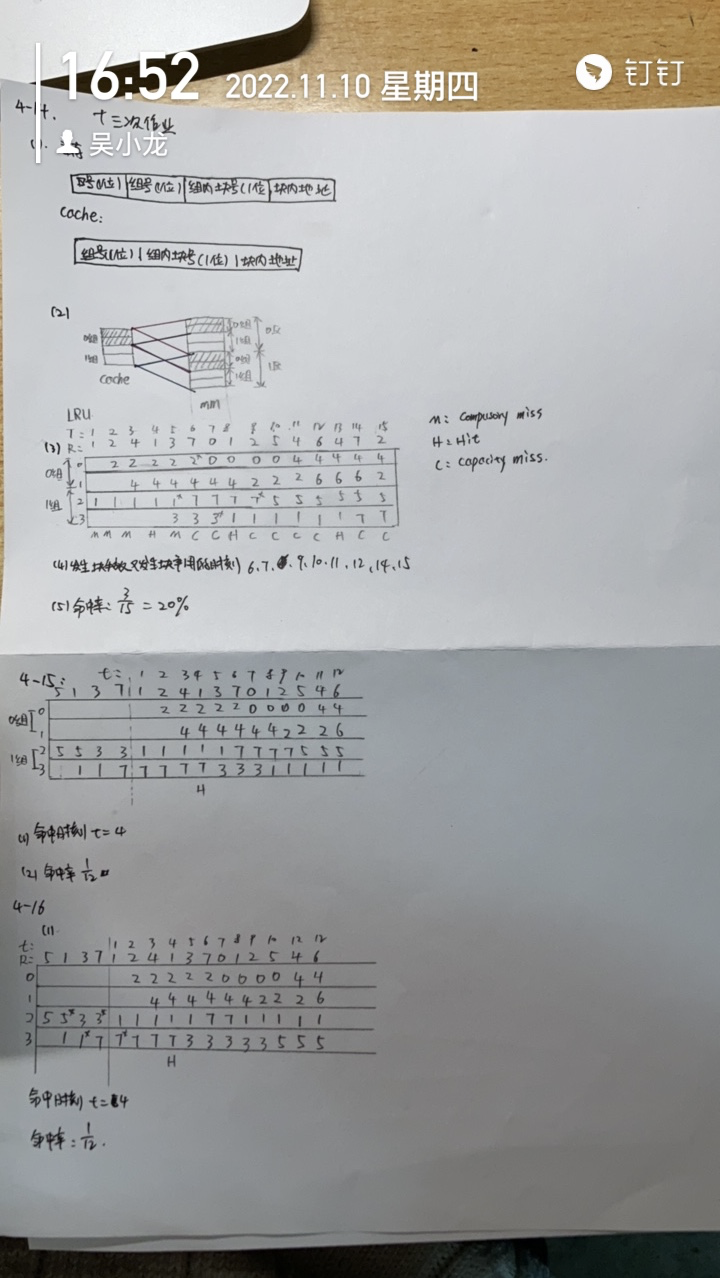 16:52 2022.11.10 星期四 钉钉
吴小龙
4-14. 十三次作业
(1).
区号(1位) 组号(1位) 组内块号(1位) 块内地址
Cache:
组号(1位) 组内块号(1位) 块内地址
(2)
0组
1组
Cache
0组
1组
0组
1组
0区
1区
mm
LRU
T: 1 2 3 4 5 6 7 8 9 10 11 12 13 14 15
(3) R: 1 2 4 1 3 7 0 1 2 5 4 6 4 7 2
0组 0 2 2 2 2 2* 0 0 0 0 4 4 4 4 4
1 4 4 4 4 4 4 2 2 2 6 6 6 2
1组 2 1 1 1 1 1* 7 7 7 7* 5 5 5 5 5 5
3 3 3 3* 1 1 1 1 1 1 7 7
M M M H M C C H C C C C H C C
M: Compusory miss
H: Hit
C: Capacity miss.
(4) 发生块失效又发生块争用的时刻 6、7、9、10、11、12、14、15
(5) 命中率: 3/15 = 20%
4-15: t: 1 2 3 4 5 6 7 8 9 10 11 12
5 1 3 7 1 2 4 1 3 7 0 1 2 5 4 6
0组 0 2 2 2 2 2 0 0 0 0 4 4
1 4 4 4 4 4 4 2 2 2 6
1组 2 5 5 3 3 1 1 1 1 1 7 7 7 7 5 5 5
3 1 1 7 7 7 7 7 3 3 3 1 1 1 1 1
H
(1) 命中时刻 t=4
(2) 命中率 1/12
4-16
(1).
t: 1 2 3 4 5 6 7 8 9 10 12 12
R: 5 1 3 7 1 2 4 1 3 7 0 1 2 5 4 6
0 2 2 2 2 2 0 0 0 0 4 4
1 4 4 4 4 4 4 2 2 2 6
2 5 5* 3 3* 1 1 1 1 1 7 7 1 1 1 1 1
3 1 1* 7 7* 7 7 7 3 3 3 3 3 5 5 5
H
命中时刻 t=4
命中率: 1/12.